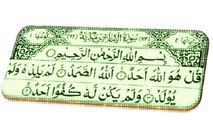 بِسْمِ اللهِ الرَّحْمٰنِ الرَّحِيْمِ
قُلْ هُوَ اللهُ اَحَدٌ ۝ اَللهُ الصَّمَدُ ۝ لَمْ يَلِدْ ۙ وَلَمْ
يُوْلَدْ ۝ وَلَمْ يَكُنْ لَّهٗ كُفُوًا اَحَدٌ ۝